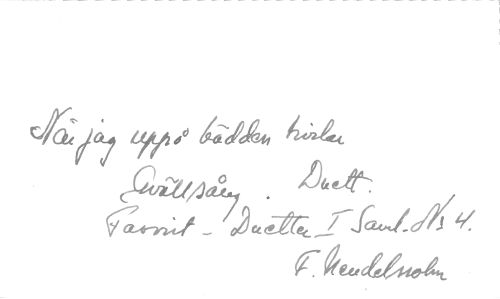 När jag uppå bädden hvilar
Qvällsång. Duett.
Favorit - Duetter I Saml. No 4.
F. Mendelssohn